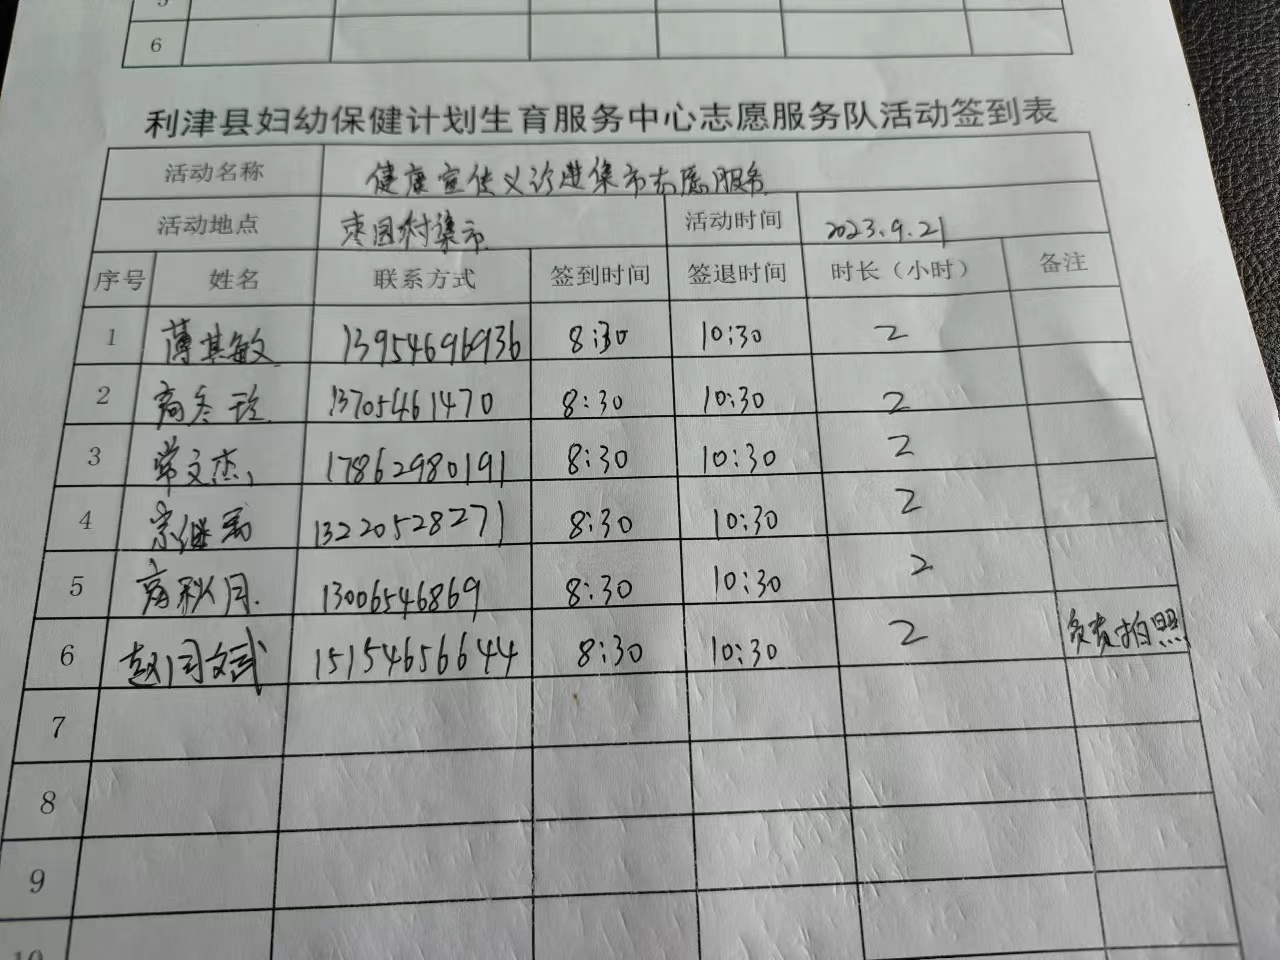 6
利津县妇幼保健计划生育服务中心志愿服务队活动签到表
活动名称 健康宣传义诊进集市志愿服务
活动地点 枣园村集市 活动时间 2023.9.21
序号 姓名 联系方式 签到时间 签退时间 时长（小时） 备注
1 薄其敏 13954696936 8:30 10:30 2
2 商冬珍 13705461470 8:30 10:30 2
3 常文杰 17862980191 8:30 10:30 2
4 宗继 13220528271 8:30 10:30 2
5 商秋月 13006546869 8:30 10:30 2
6 赵闫文武 15154656644 8:30 10:30 2 负责拍照
7
8
9
10